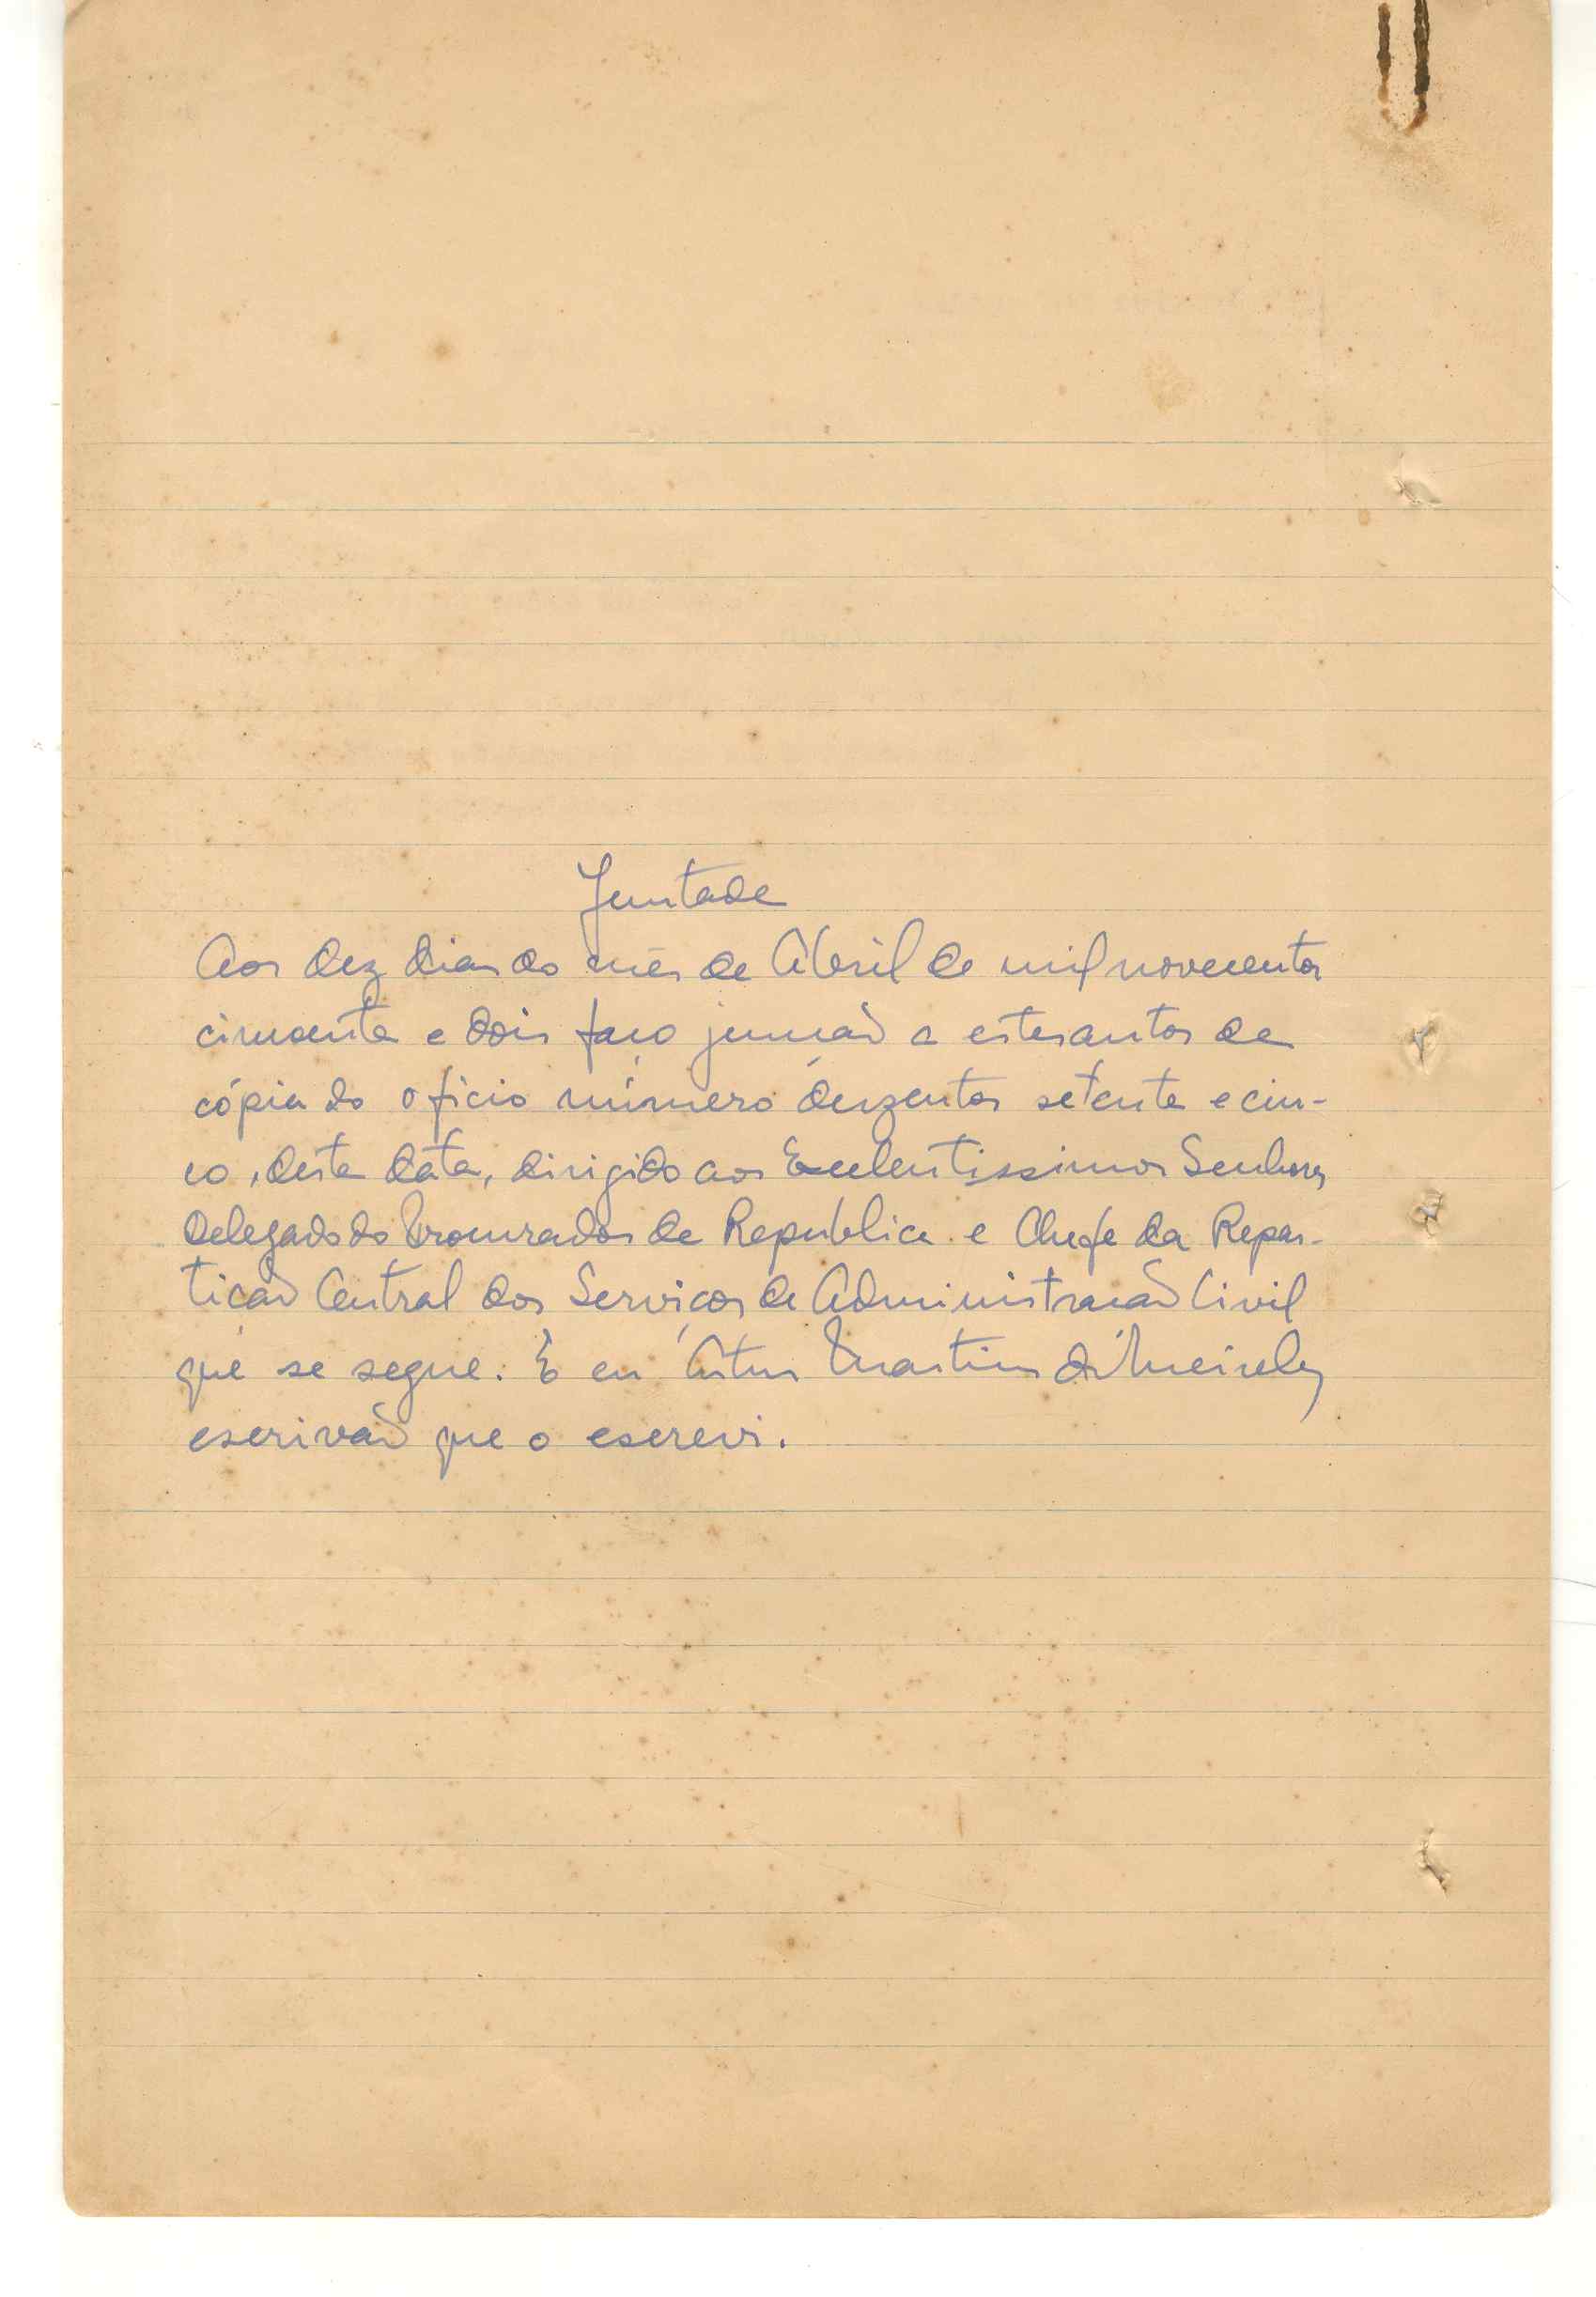 Juntada
Aos dez dias do mês de Abril de mil novecentos
cincoenta e dois faço junção a estes autos da
cópia do oficio número duzentos setenta e cin-
co, desta data, dirigido aos Excelentissimos Senhores
Delegado do Procurador da Republica e Chefe da Repar-
tição Central dos Serviços de Administração Civil
que se segue. E eu Artur Martins de Meireles
escrivão que o escrevi.